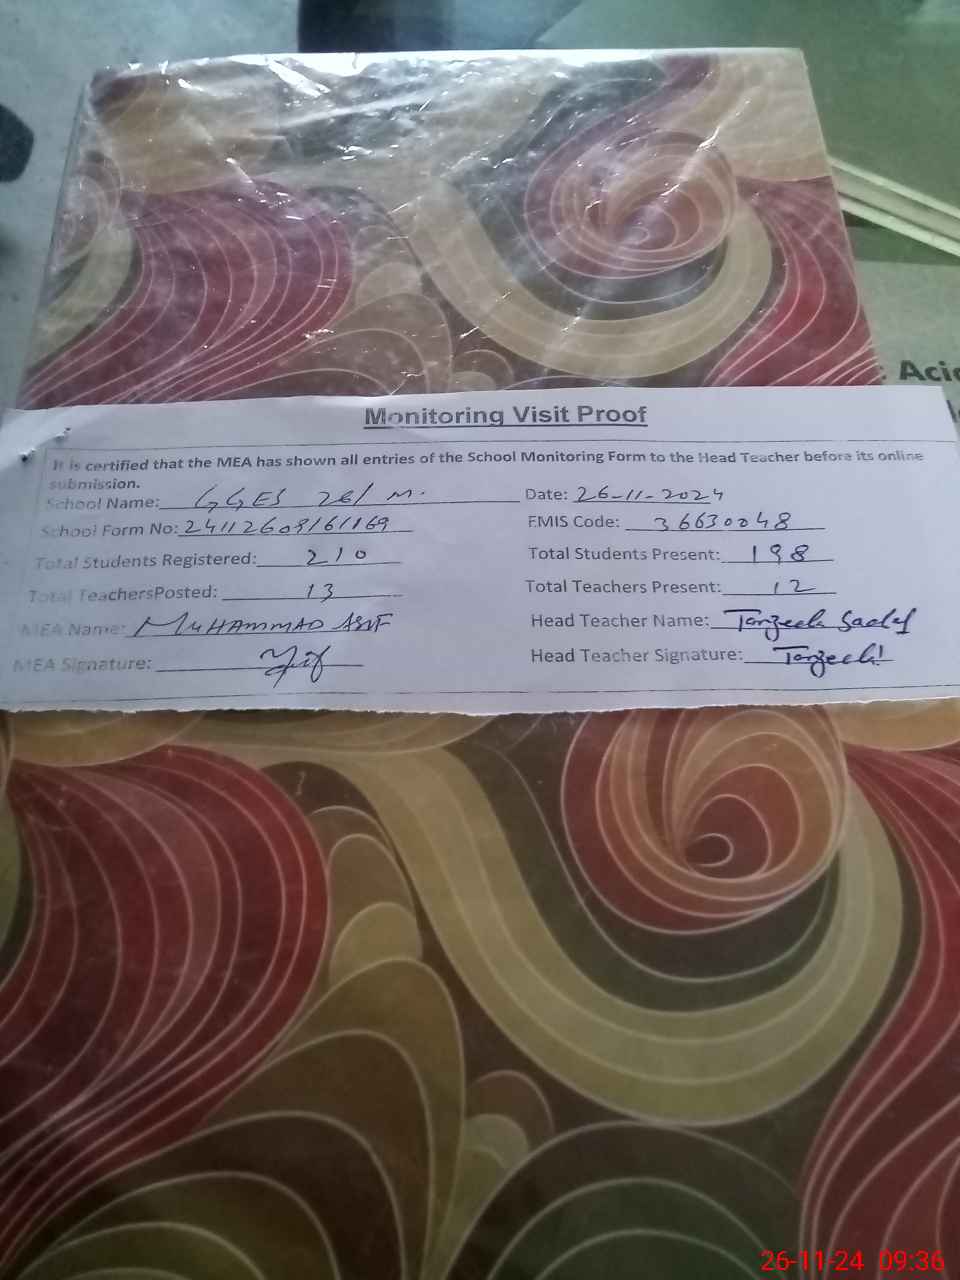 : Acid
Monitoring Visit Proof
It is certified that the MEA has shown all entries of the School Monitoring Form to the Head Teacher before its online
submission.
School Name: GGES 26/ M. Date: 26-11-2024
School Form No: EMIS Code: 36630048
Total Students Registered: 210 Total Students Present: 198
Total TeachersPosted: 13 Total Teachers Present: 12
MEA Name: MUHAMMAD ASIF Head Teacher Name: Tanzeela Sadaf
MEA Signature: Asif Head Teacher Signature: Tanzeela
26-11-24 09:36